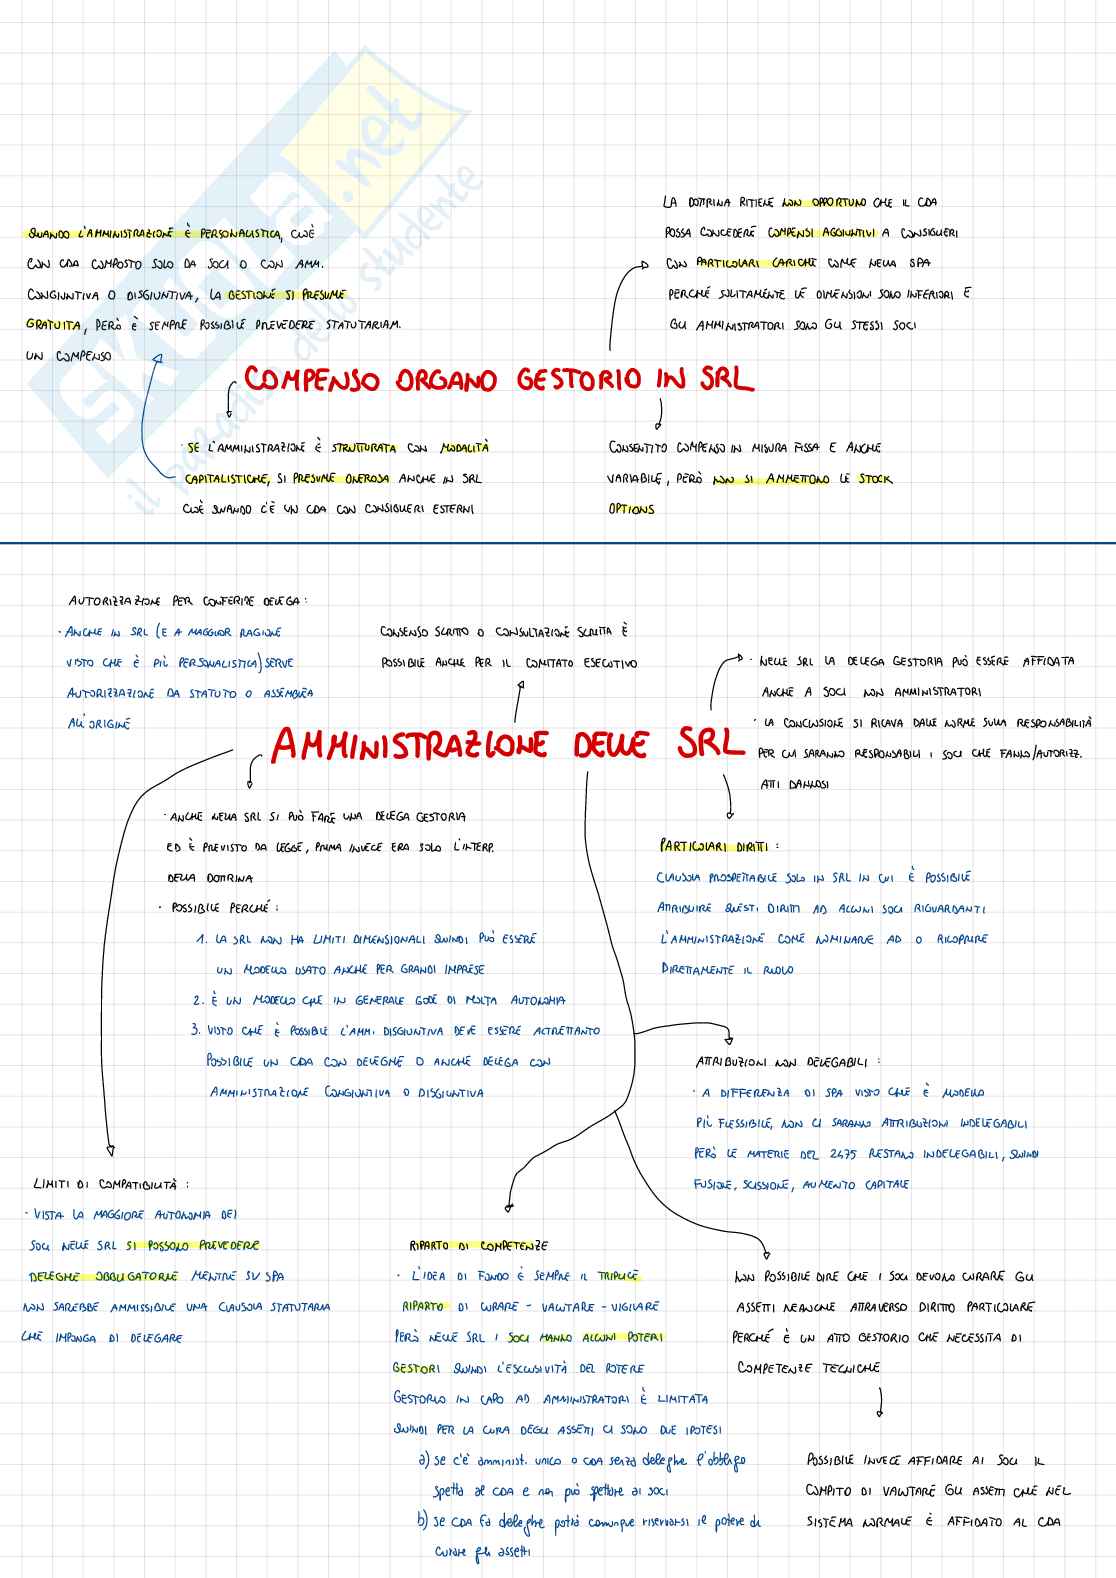 LA DOTTRINA RITIENE NON OPPORTUNO CHE IL CDA
POSSA CONCEDERE COMPENSI AGGIUNTIVI A CONSIGLIERI
CON PARTICOLARI CARICHE COME NELLA SPA
PERCHÉ SOLITAMENTE LE DIMENSIONI SOLO INFERIORI E
GLI AMMINISTRATORI SOLO GLI STESSI SOCI
QUANDO L'AMMINISTRAZIONE È PERSONALISTICA, CIOÈ
CON CDA COMPOSTO SOLO DA SOCI O CON AMM.
CONGIUNTIVA O DISGIUNTIVA, LA GESTIONE SI PRESUME
GRATUITA, PERÒ È SEMPRE POSSIBILE PREVEDERE STATUTARIAM.
UN COMPENSO
COMPENSO ORGANO GESTORIO IN SRL
· SE L'AMMINISTRAZIONE È STRUTTURATA CON MODALITÀ
CAPITALISTICHE, SI PRESUME ONEROSA ANCHE IN SRL
CIOÈ QUANDO C'È UN CDA CON CONSIGLIERI ESTERNI
CONSENTITO COMPENSO IN MISURA FISSA E ANCHE
VARIABILE, PERÒ NON SI AMMETTONO LE STOCK
OPTIONS
SKUOLA.net
il paradiso dello studente
AUTORIZZAZIONE PER CONFERIRE DELEGA :
· ANCHE IN SRL (E A MAGGIOR RAGIONE
VISTO CHE È PIÙ PERSONALISTICA) SERVE
AUTORIZZAZIONE DA STATUTO O ASSEMBLEA
ALL'ORIGINE
CONSENSO SCRITTO O CONSULTAZIONE SCRITTA È
POSSIBILE ANCHE PER IL COMITATO ESECUTIVO
· NELLE SRL LA DELEGA GESTORIA PUÒ ESSERE AFFIDATA
ANCHE A SOCI NON AMMINISTRATORI
· LA CONCLUSIONE SI RICAVA DALLE NORME SULLA RESPONSABILITÀ
PER CUI SARANNO RESPONSABILI I SOCI CHE FANNO/AUTORIZZ.
ATTI DANNOSI
AMMINISTRAZIONE DELLE SRL
· ANCHE NELLA SRL SI PUÒ FARE UNA DELEGA GESTORIA
ED È PREVISTO DA LEGGE, PRIMA INVECE ERA SOLO L'INTERP.
DELLA DOTTRINA
· POSSIBILE PERCHÉ :
1. LA SRL NON HA LIMITI DIMENSIONALI QUINDI PUÒ ESSERE
UN MODELLO USATO ANCHE PER GRANDI IMPRESE
2. È UN MODELLO CHE IN GENERALE GODE DI MOLTA AUTONOMIA
3. VISTO CHE È POSSIBILE L'AMM. DISGIUNTIVA DEVE ESSERE ALTRETTANTO
POSSIBILE UN CDA CON DELEGHE O ANCHE DELEGA CON
AMMINISTRAZIONE CONGIUNTIVA O DISGIUNTIVA
PARTICOLARI DIRITTI :
CLAUSOLA PROSPETTABILE SOLO IN SRL IN CUI È POSSIBILE
ATTRIBUIRE QUESTI DIRITTI AD ALCUNI SOCI RIGUARDANTI
L'AMMINISTRAZIONE COME NOMINARE AD O RICOPRIRE
DIRETTAMENTE IL RUOLO
ATTRIBUZIONI NON DELEGABILI :
· A DIFFERENZA DI SPA VISTO CHE È MODELLO
PIÙ FLESSIBILE, NON CI SARANNO ATTRIBUZIONI INDELEGABILI
PERÒ LE MATERIE DEL 2475 RESTANO INDELEGABILI, QUINDI
FUSIONE, SCISSIONE, AUMENTO CAPITALE
LIMITI DI COMPATIBILITÀ :
· VISTA LA MAGGIORE AUTONOMIA DEI
SOCI NELLE SRL SI POSSONO PREVEDERE
DELEGHE OBBLIGATORIE MENTRE SU SPA
NON SAREBBE AMMISSIBILE UNA CLAUSOLA STATUTARIA
CHE IMPONGA DI DELEGARE
RIPARTO DI COMPETENZE
· L'IDEA DI FONDO È SEMPRE IL TRIPLICE
RIPARTO DI CURARE - VALUTARE - VIGILARE
PERÒ NELLE SRL I SOCI HANNO ALCUNI POTERI
GESTORI QUINDI L'ESCLUSIVITÀ DEL POTERE
GESTORIO IN CAPO AD AMMINISTRATORI È LIMITATA
QUINDI PER LA CURA DEGLI ASSETTI CI SONO DUE IPOTESI
a) se c'è amminist. unico o CDA senza deleghe l'obbligo
spetta al CDA e non può spettare ai soci
b) se CDA fa deleghe potrà comunque riservarsi il potere di
curare gli assetti
NON POSSIBILE DIRE CHE I SOCI DEVONO CURARE GLI
ASSETTI NEANCHE ATTRAVERSO DIRITTO PARTICOLARE
PERCHÉ È UN ATTO GESTORIO CHE NECESSITA DI
COMPETENZE TECNICHE
POSSIBILE INVECE AFFIDARE AI SOCI IL
COMPITO DI VALUTARE GLI ASSETTI CHE NEL
SISTEMA NORMALE È AFFIDATO AL CDA